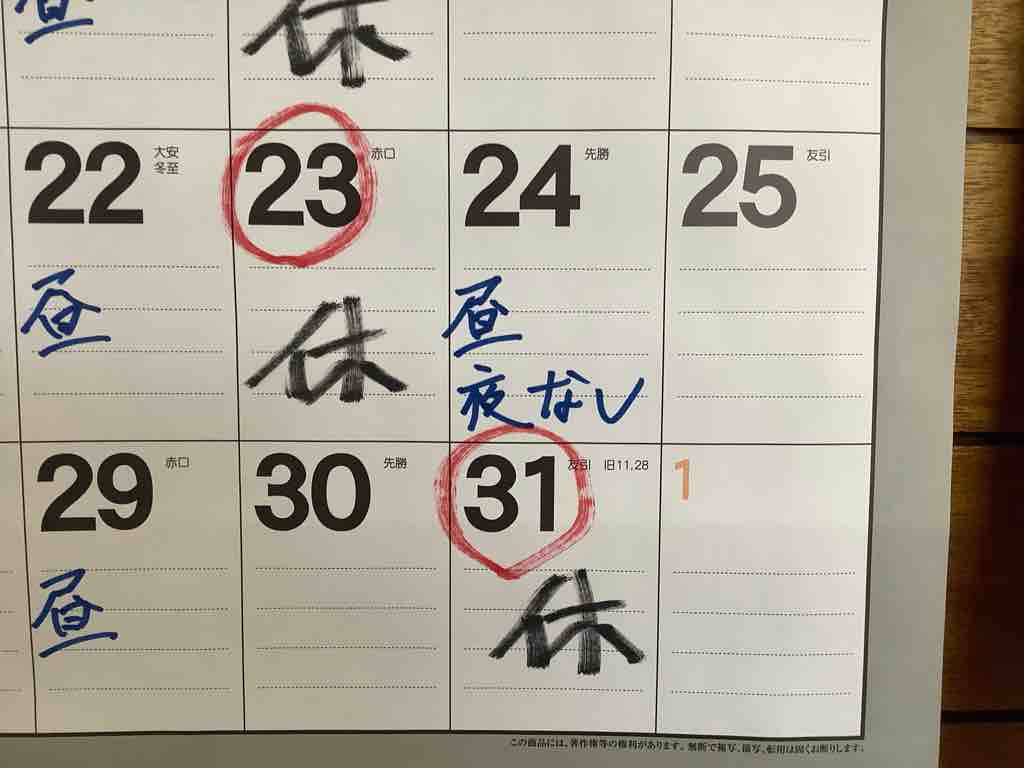 昼
休
22 大安
冬至
23 赤口
24 先勝
25 友引
昼
休
昼
夜なし
29 赤口
30 先勝
31 友引 旧11.28
1
昼
休
この商品には、著作権等の権利があります。無断で複写、描写、転用は固くお断りします。